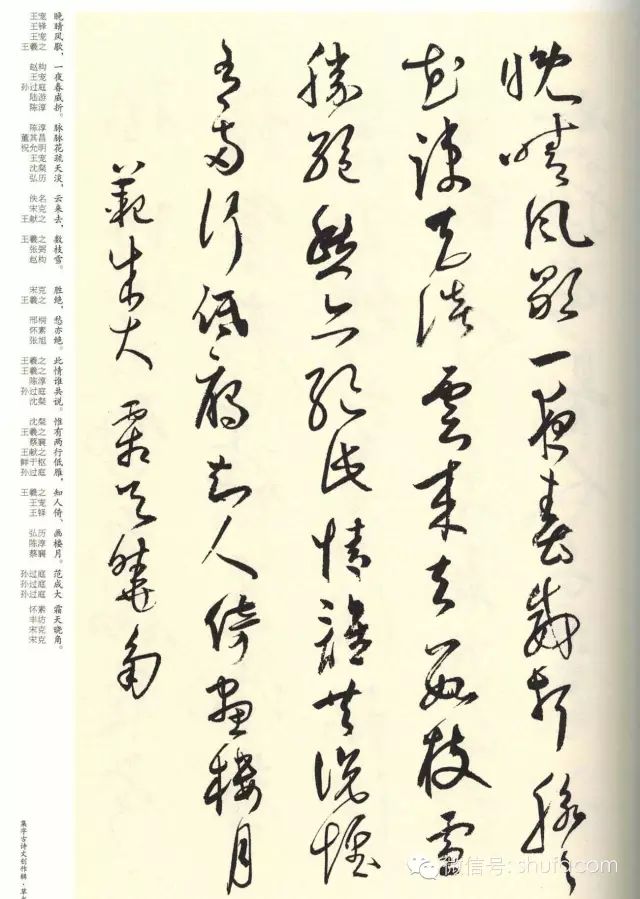 晚晴風歇一夜春威折脉〻
花疎天淡雲来去數枝雪
勝絶愁亦絶此情誰共說惟
有兩行低鴈知人倚畫樓月
範成大 霜天曉角
王宠 晚
王铎 晴
王宠 风
王羲之 歇，
赵构 一
王宠 夜
孙过庭 春
陆游 威
陈淳 折。
陈淳 脉
董其昌 脉
祝允明 花
王宠 疏
沈粲 天
弘历 淡，
佚名 云
宋克 来
王献之 去，
王羲之 数
张弼 枝
赵构 雪。
宋克 胜
王羲之 绝，
邢侗 愁
怀素 亦
张旭 绝。
王羲之 此
王羲之 情
陈淳 谁
孙过庭 共
沈粲 说。
沈粲 惟
王羲之 有
蔡襄 两
王献之 行
鲜于枢 低
孙过庭 雁，
王羲之 知
王宠 人
王铎 倚，
弘历 画
陈淳 楼
蔡襄 月。
孙过庭 范
孙过庭 成
孙过庭 大
怀素 霜
丰坊 天
宋克 晓
宋克 角。
集字古诗文创作辑·草
微信号: shufacom